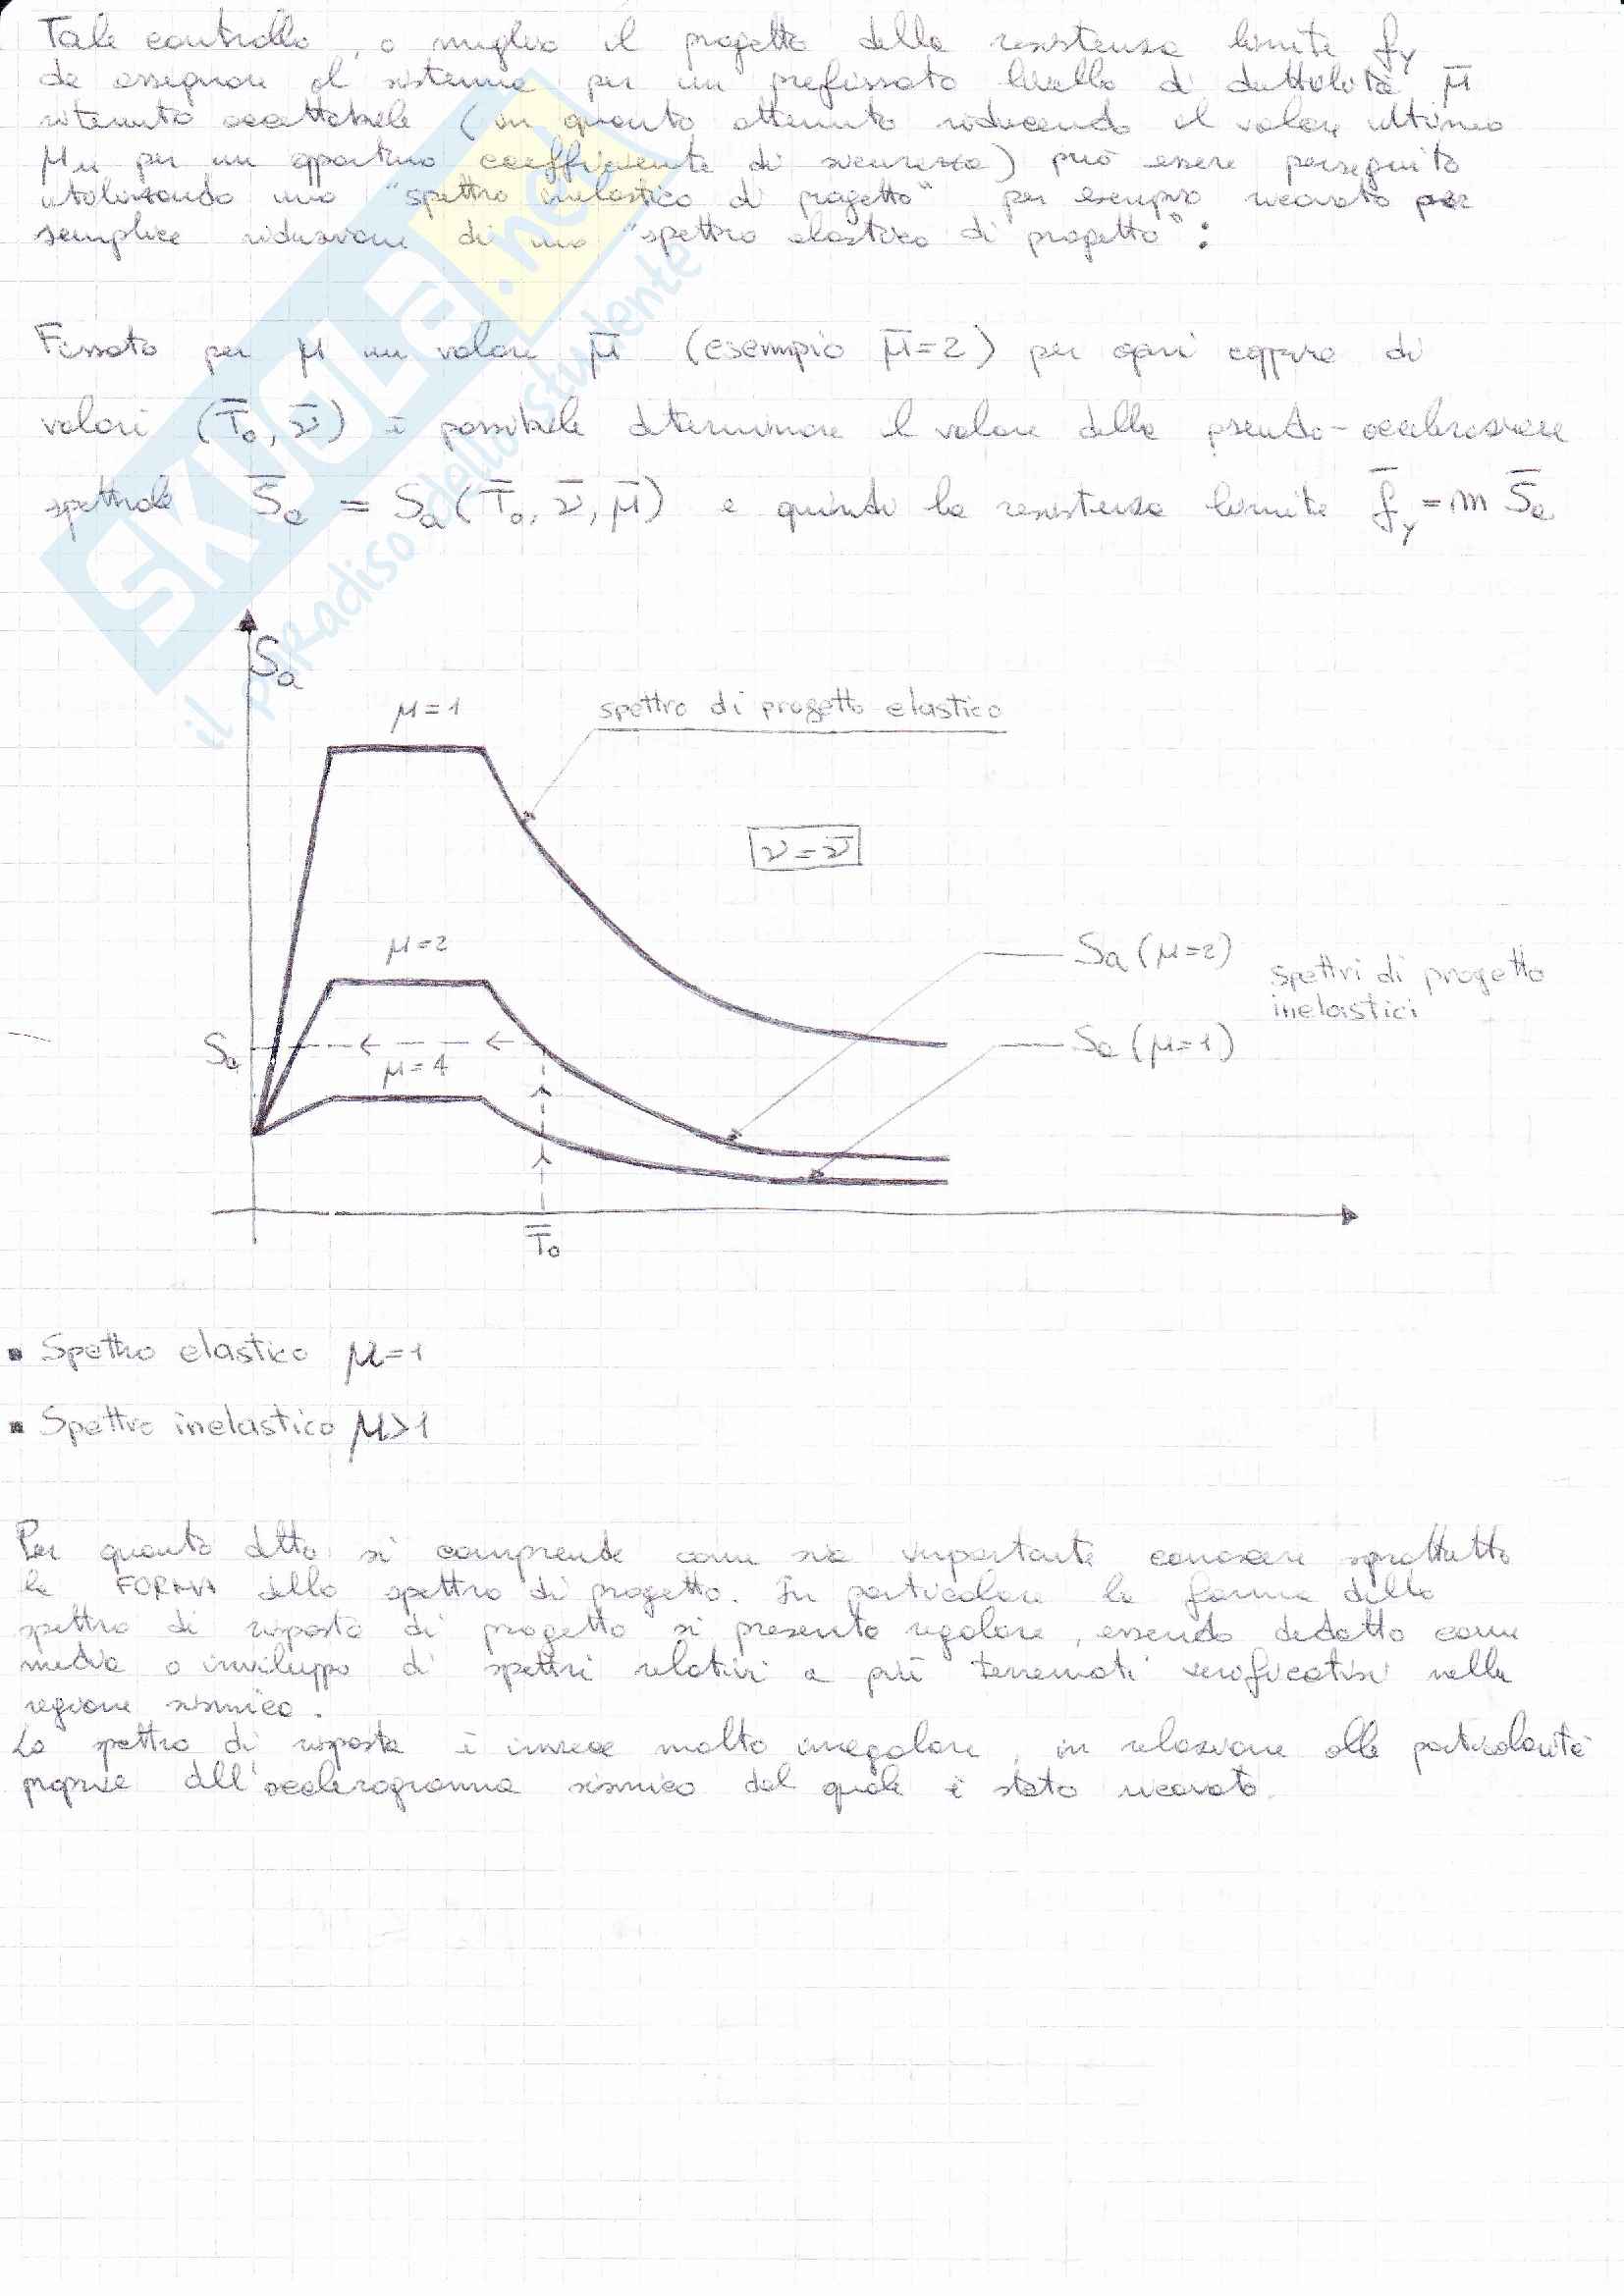 Tale controllo, o meglio il progetto della resistenza limite fy
da assegnare al sistema per un prefissato livello di duttilità μ̄
ritenuto accettabile (in quanto ottenuto riducendo il valore ultimo
μu per un opportuno coefficiente di sicurezza) può essere perseguito
utilizzando uno "spettro inelastico di progetto" per esempio ricavato per
semplice riduzione di uno "spettro elastico di progetto":
Fissato per μ un valore μ̄ (esempio μ̄=2) per ogni coppia di
valori (T̄o, ν̄) è possibile determinare il valore della pseudo-accelerazione
spettrale S̄a = Sa(T̄o, ν̄, μ̄) e quindi la resistenza limite f̄y = m S̄a
Sa
μ=1
spettro di progetto elastico
ν=ν̄
μ=2
Sa (μ=2)
spettri di progetto
inelastici
Sa
μ=4
Sa (μ=1)
T̄o
▪ Spettro elastico μ=1
▪ Spettro inelastico μ>1
Per quanto detto si comprende come sia importante conoscere soprattutto
la FORMA dello spettro di progetto. In particolare la forma dello
spettro di risposta di progetto si presenta regolare, essendo dedotto come
media o inviluppo di spettri relativi a più terremoti verificatisi nella
regione sismica.
Lo spettro di risposta è invece molto irregolare, in relazione alle particolarità
proprie dell'accelerogramma sismico dal quale è stato ricavato.
SKUOLA.net
il paradiso dello studente